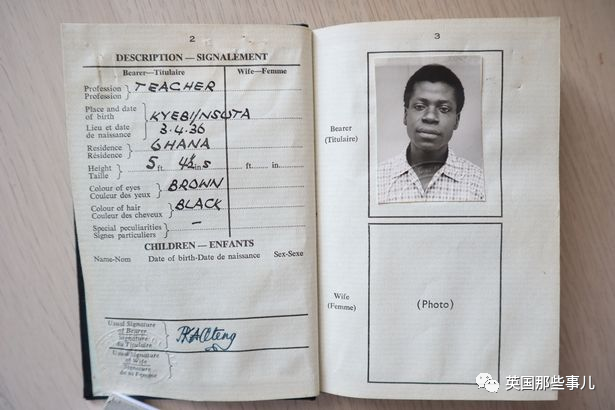 2
DESCRIPTION — SIGNALEMENT
Bearer—Titulaire
Wife—Femme
Profession
Profession
TEACHER
Place and date
of birth
KYEBI/NSUTA
Lieu et date
de naissance
3.4.36
Residence
Résidence
GHANA
Height
Taille
5 ft. 4½ ins
ft. in.
Colour of eyes
Couleur des yeux
BROWN
Colour of hair
Couleur des cheveux
BLACK
Special peculiarities
Signes particuliers
—
CHILDREN — ENFANTS
Name-Nom Date of birth-Date de naissance Sex-Sexe
Usual Signature
of Bearer
Signature
du Titulaire
Usual Signature
of Wife
Signature
de sa Femme
3
Bearer
(Titulaire)
Wife
(Femme)
(Photo)
英国那些事儿